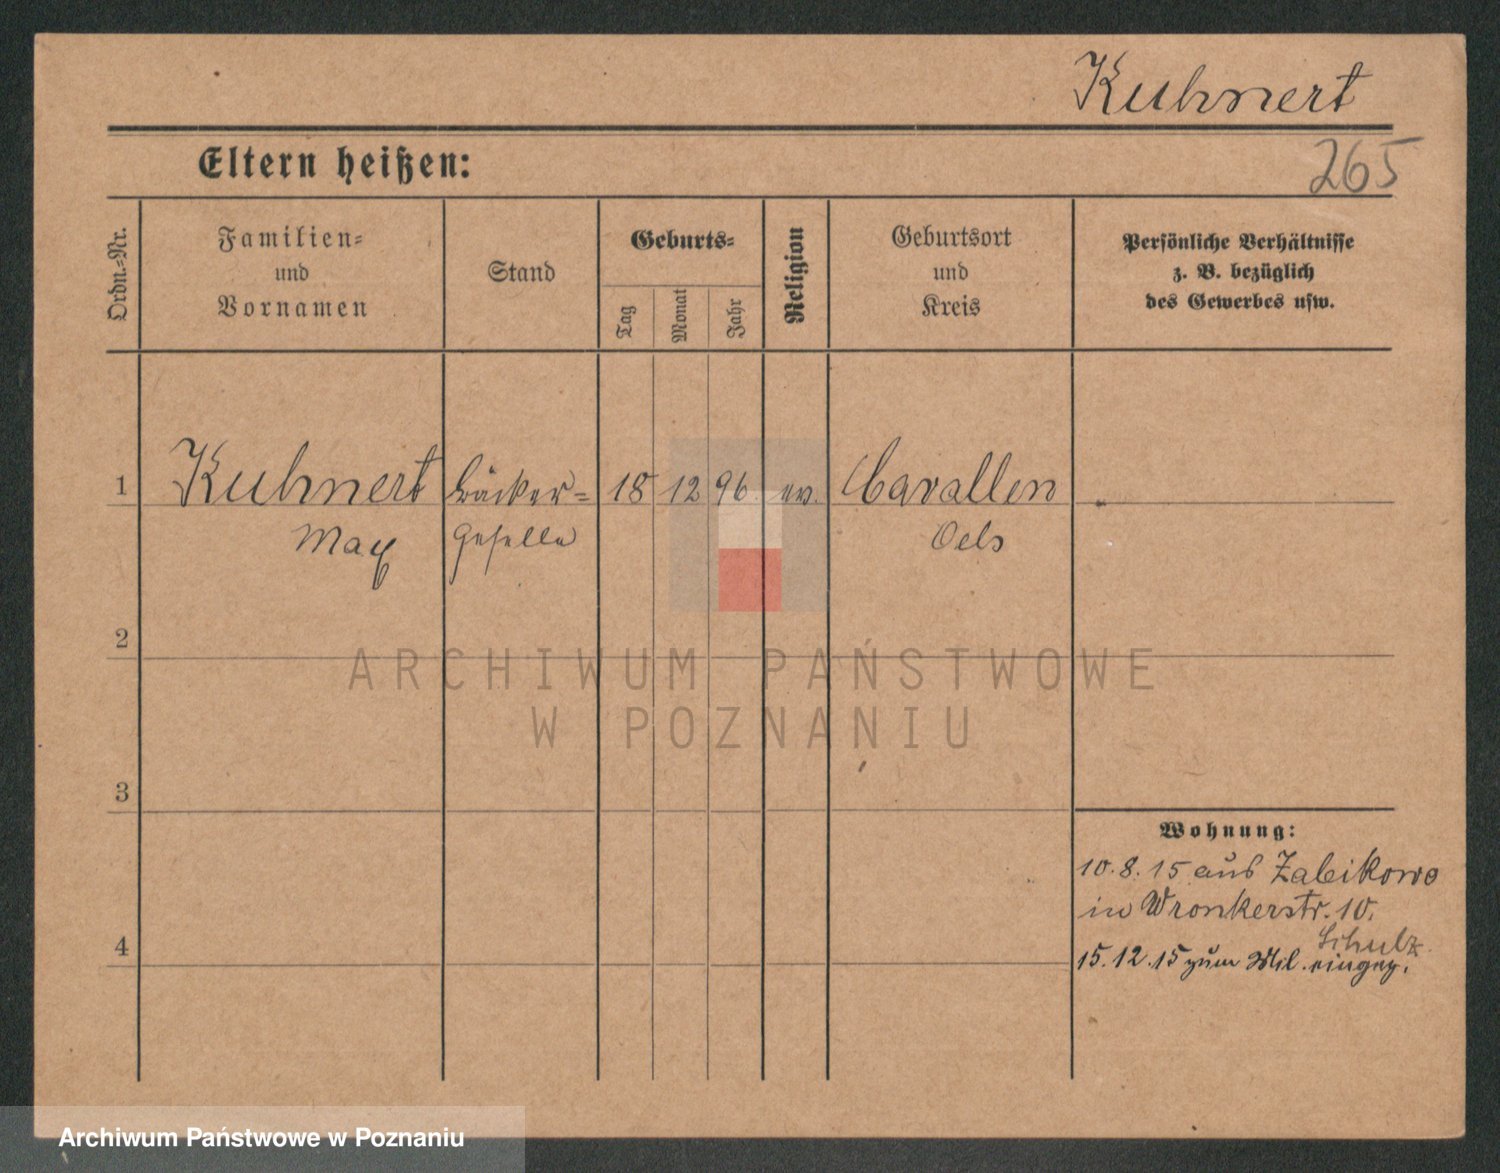 Kuhnert
Eltern heißen:
265
Ordn.-Nr.
Familien-
und
Vornamen
Stand
Geburts-
Tag
Monat
Jahr
Religion
Geburtsort
und
Kreis
Persönliche Verhältnisse
z. B. bezüglich
des Gewerbes usw.
1
Kuhnert
Max
Bäcker-
geselle
18
12
96
ev.
Cavallen
Oels
2
3
4
Wohnung:
10.8.15 aus Zabikowo
in Wronkerstr. 10.
Schulz
15.12.15 zum Mil. eingez.
ARCHIWUM PAŃSTWOWE
W POZNANIU
Archiwum Państwowe w Poznaniu